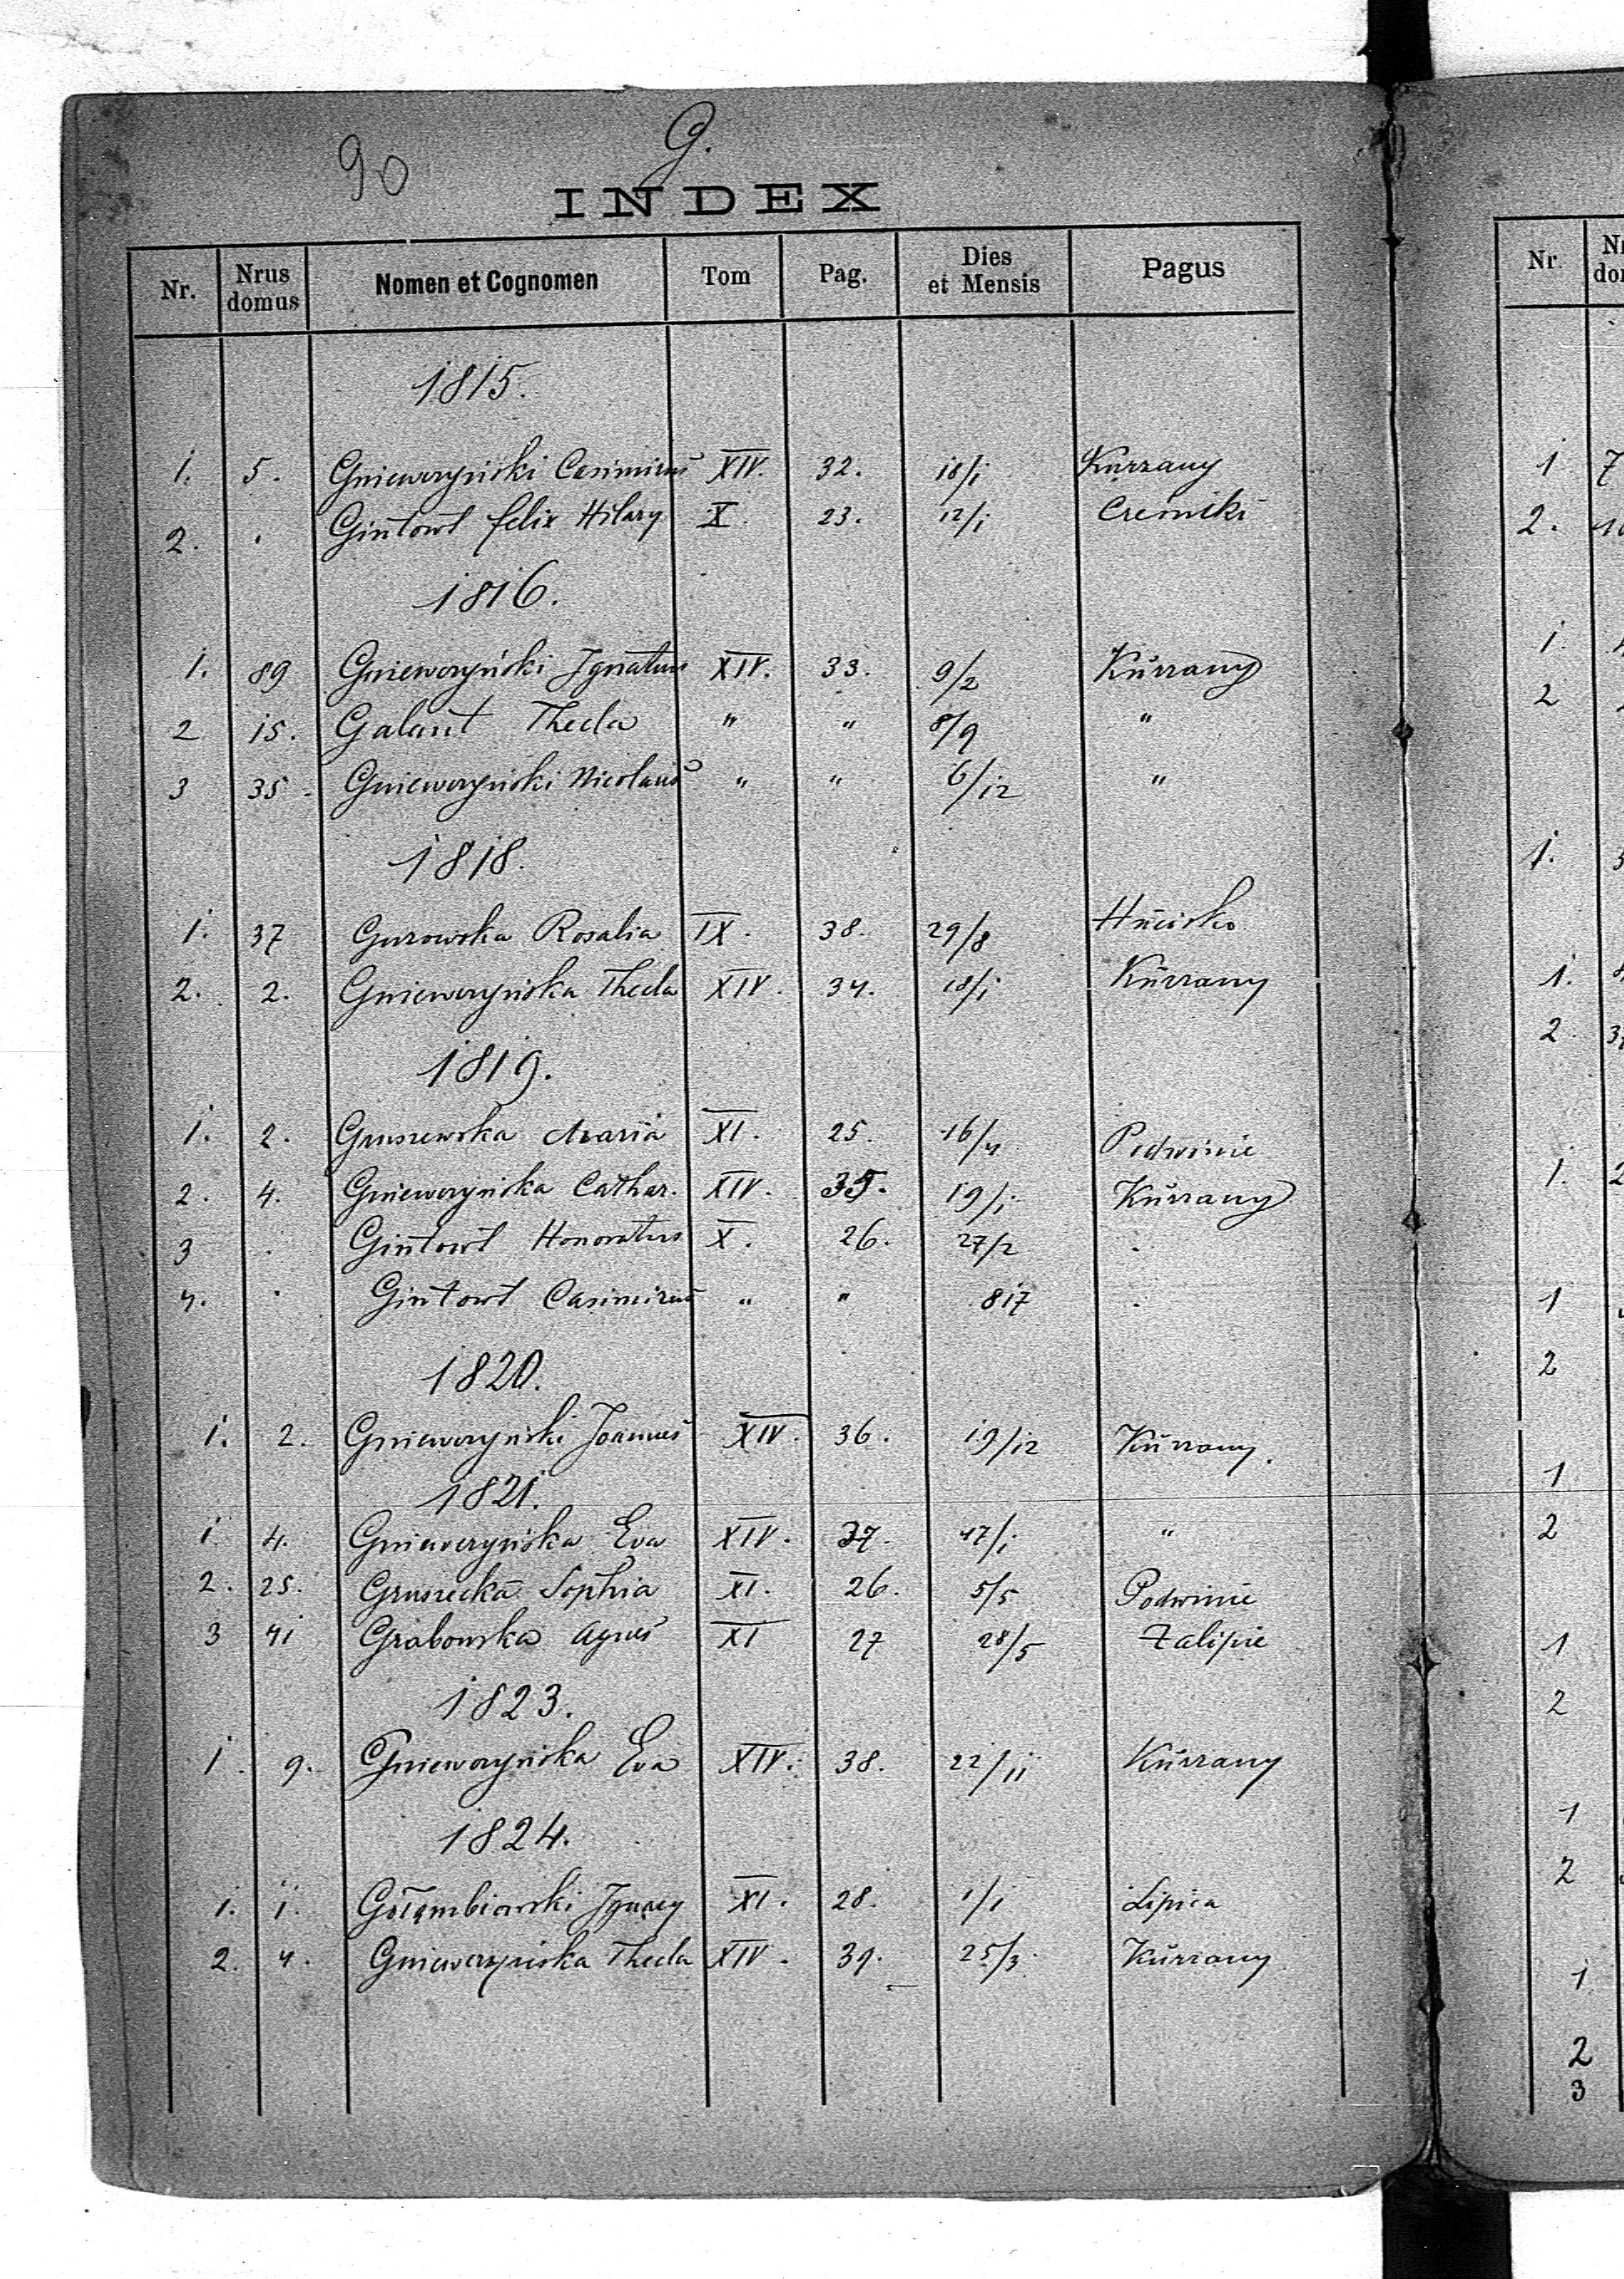 90
G.
INDEX
Nr. Nrus domus Nomen et Cognomen Tom Pag. Dies et Mensis Pagus
1815.
1. 5. Gnieweryński Casimirus XIV. 32. 18/1 Kurzany
2. . Gintowt Felix Hilary X. 23. 12/1 Cremiki
1816.
1. 89 Gnieweryński Ignatius XIV. 33. 9/2 Kurzany
2 15. Galant Thecla " " 8/9 "
3 35 - Gnieweryński Nicolaus " " 6/12 "
1818.
1. 37 Gurowska Rosalia IX. 38. 29/8 Hucisko
2. 2. Gnieweryńska Thecla XIV. 34. 18/1 Kurzany
1819.
1. 2. Gruszewska Maria XI. 25. 16/4 Podwinie
2. 4. Gnieweryńska Cathar. XIV. 35. 19/1 Kurzany
3 . Gintowt Honoratus X. 26. 27/2 .
4. . Gintowt Casimirus " " 817 .
1820.
1. 2. Gnieweryński Joannes XIV. 36. 19/12 Kurzany.
1821.
1 4. Gnieweryńska Eva XIV. 37. 17/1 "
2. 25. Gruszecka Sophia XI. 26. 5/5 Podwinie
3 41 Grabowska Agnes XI 27 28/5 Zalipie
1823.
1. 9. Gnieweryńska Eva XIV. 38. 22/11 Kurzany
1824.
1. 1. Gołambiowski Ignacy XI. 28. 1/1 Lipica
2. 4. Gnieweryńska Thecla XIV. 39. 25/3. Kurzany
Nr.
1 7
2.
1.
2
1. 3
1.
2 3
1. 2
1
2
1
2
1
2
1
2
1
2
3